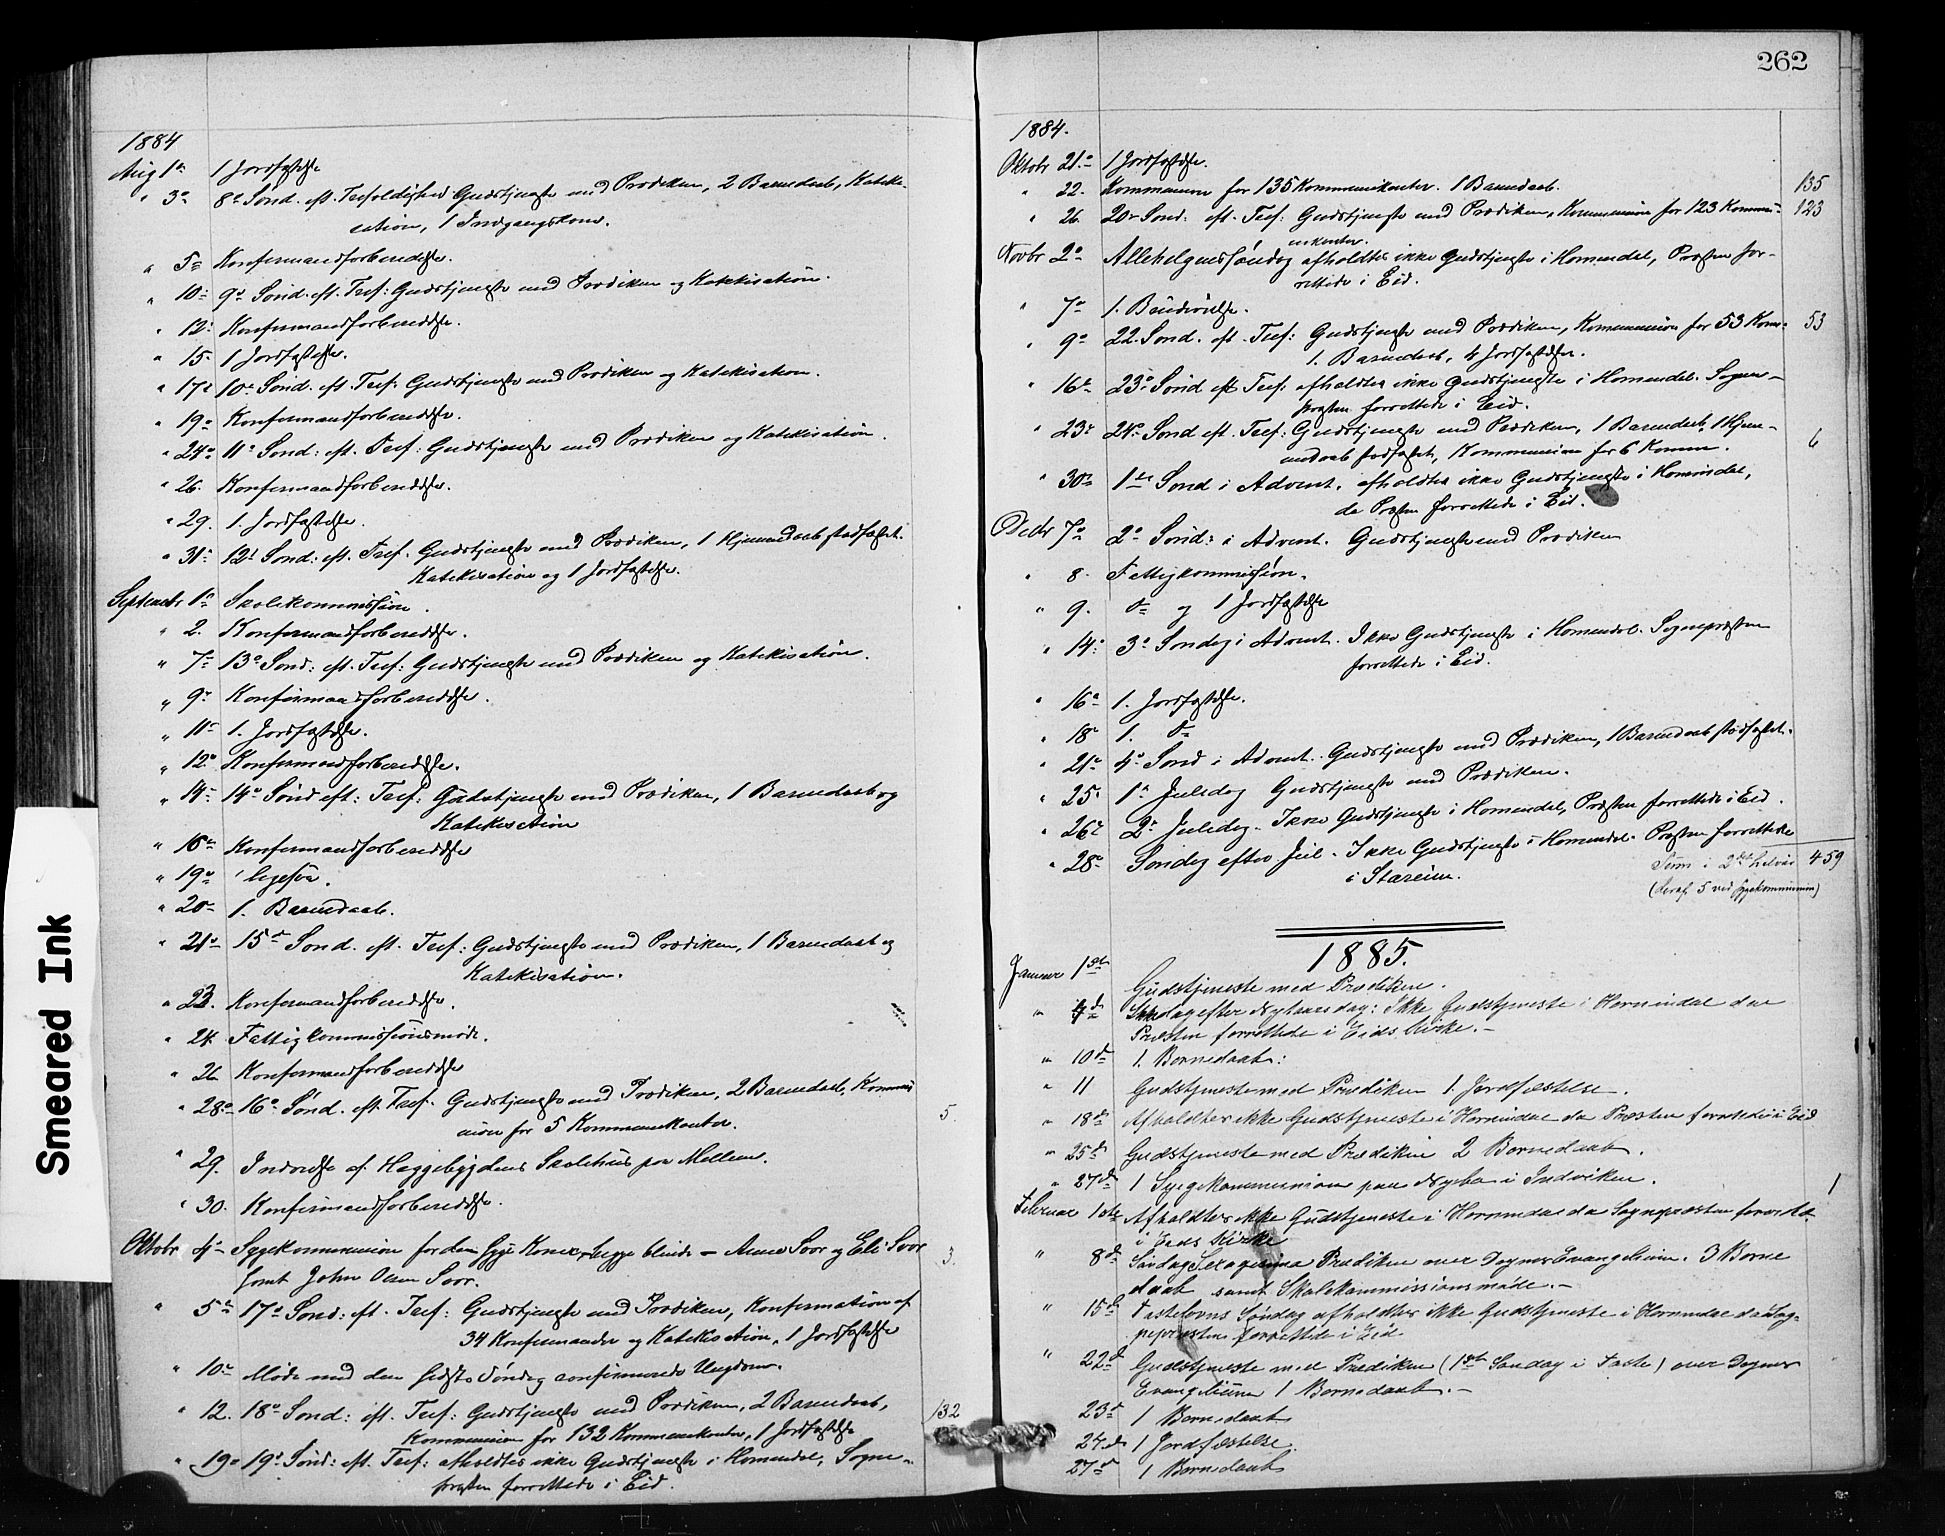 262
1884
Aug 1ste 1 Jordfæstelse
" 3die 8de Sønd. eft. Trefoldighed Gudstjeneste med Prædiken, 2 Barnedaab, Kateki-
sation, 1 Indgangskone.
" 5te Konfirmandforberedelse.
" 10de 9de Sønd. eft. Tref: Gudstjeneste med Prædiken og Katekisation.
" 12. Konfirmandforberedelse.
" 15. 1 Jordfæstelse.
" 17de 10de Sønd. eft. Tref: Gudstjeneste med Prædiken og Katekisation.
" 19de Konfirmandforberedelse.
" 24de 11te Sønd: eft. Tref: Gudstjeneste med Prædiken og Katekisation.
" 26. Konfirmandforberedelse.
" 29. 1. Jordfæstelse.
" 31te 12te Sønd: eft. Tref. Gudstjeneste med Prædiken, 1 Hjemmedaab stadfæstet.
Katekisation og 1 Jordfæstelse.
Septembr 1ste Skolekommission.
" 2. Konfirmandforberedelse.
" 7de 13de Sønd: eft. Tref: Gudstjeneste med Prædiken og Katekisation.
" 9de Konfirmandforberedelse.
" 11te 1. Jordfæstelse.
" 12te Konfirmandforberedelse.
" 14de 14de Sønd eft: Tref: Gudstjeneste med Prædiken, 1 Barnedaab og
Katekisation
" 16de Konfirmandforberedelse
" 19de
" 20de 1. Barnedaab.
" 21de 15de Sønd. eft. Tref: Gudstjeneste med Prædiken, 1 Barnedaab og
Katekisation.
" 23. Konfirmandforberedelse.
" 24. Fattigkommissionsmøde.
" 26 Konfirmandforberedelse
" 28de 16de Sønd. eft. Tref. Gudstjeneste med Prædiken, 2 Barnedaab, Kommu-
nion for 5 Kommunikanter. 5
" 29. Indvielse af Haggebygdens Skolehus paa Mellem.
" 30. Konfirmandforberedelse.
Oktobr 4de Sygekommunion for den syge Kone Anne Svor og Eli Svor
samt John Olsen Svor. 3.
" 5te 17de Sønd: eft. Tref: Gudstjeneste med Prædiken, Konfirmation af
34 Konfirmander og Katekisation, 1 Jordfæstelse
" 10de Møde med den sidste Søndag confirmerede Ungdom.
" 12. 18de Sønd: eft. Tref: Gudstjeneste med Prædiken, 2 Barnedaab,
Kommunion for 132 Kommunikanter, 1 Jordfæstelse 132
" 19de 19de Sønd: eft. Tref: afholdtes ikke Gudstjeneste i Hornindal, Sogne-
præsten forrettede i Eid.
1884.
Oktobr 21de 1 Jordfæstelse.
" 22. Kommunion for 135 Kommunikanter. 1 Barnedaab. 135
" 26. 20de Sønd: eft. Tref: Gudstjeneste med Prædiken, Kommunion for 123 Kommu- 123
nikanter.
Novbr 2den Allehelgensøndag afholdtes ikke Gudstjeneste i Hornindal, Præsten for-
rettede i Eid.
" 7de 1.
" 9de 22. Sønd. eft. Tref: Gudstjeneste med Prædiken, Kommunion for 53 Kom- 53
1. Barnedaab, 4 Jordfæstelser.
" 16de 23de Sønd eft Tref: afholdtes ikke Gudstjeneste i Hornindal. Sogne-
præsten forrettede i Eid.
" 23de 24de Sønd eft. Tref: Gudstjeneste med Prædiken, 1 Barnedaab, 1 Hjem-
medaab stadfæstet, Kommunion for 6 Komm. 6
" 30te 1ste Sønd i Advent. afholdtes ikke Gudstjeneste i Hornindal,
da Præsten forrettede i Eid.
Decbr 7de 2den Sønd: i Advent. Gudstjeneste med Prædiken
" 8. Fattigkommission.
" 9. do og 1 Jordfæstelse
" 14. 3die Søndag i Advent. Ikke Gudstjeneste i Hornindal. Sognepræsten
forrettede i Eid.
" 16de 1. Jordfæstelse.
" 18de 1. do
" 21de 4de Sønd i Advent. Gudstjeneste med Prædiken, 1 Barnedaab stadfæstet.
" 25. 1ste Juledag Gudstjeneste med Prædiken.
" 26de 2den Juledag. Ikke Gudstjeneste i Hornindal, Præsten forrettede i Eid.
" 28de Søndag efter Jul. Ikke Gudstjeneste i Hornindal. Præsten forrettede
i Stareim.
Sum i 2det halvår 459
(deraf 5 ved sygekommunion)
1885.
Januar 1ste Gudstjeneste med Prædiken.
" 4de Søndag efter Nytaarsdag: Ikke Gudstjeneste i Hornindal da
Præsten forrettede i Eids Kirke.-
" 10de 1. Barnedaab:
" 11 Gudstjeneste med Prædiken 1. Jordfæstelse.
" 18de Afholdtes ikke Gudstjeneste i Hornindal da Præsten forrettede i Eid
" 25de Gudstjeneste med Prædiken 2 Barnedaab.
" 27de 1 Sygekommunion paa Nyebø i Indviken. 1
Februar 1ste Afholdtes ikke Gudstjeneste i Hornindal da Sognepræsten forrettede
i Eids Kirke
" 8de Søndag Sexagesima Prædiken over Dagens Evangelium. 3 Barne
daab samt Skolekommissionsmøde.-
" 15de Fastelavns Søndag afholdtes ikke Gudstjeneste i Hornindal da Sog-
nepræsten forrettede i Eid
" 22de Gudstjeneste med Prædiken (1ste Søndag i Faste) over Dagens
Evangelium 1 Barnedaab.-
23de 1 Barnedaab
24de 1 Jordfæstelse.
27de 1 Barnedaab
Smeared Ink